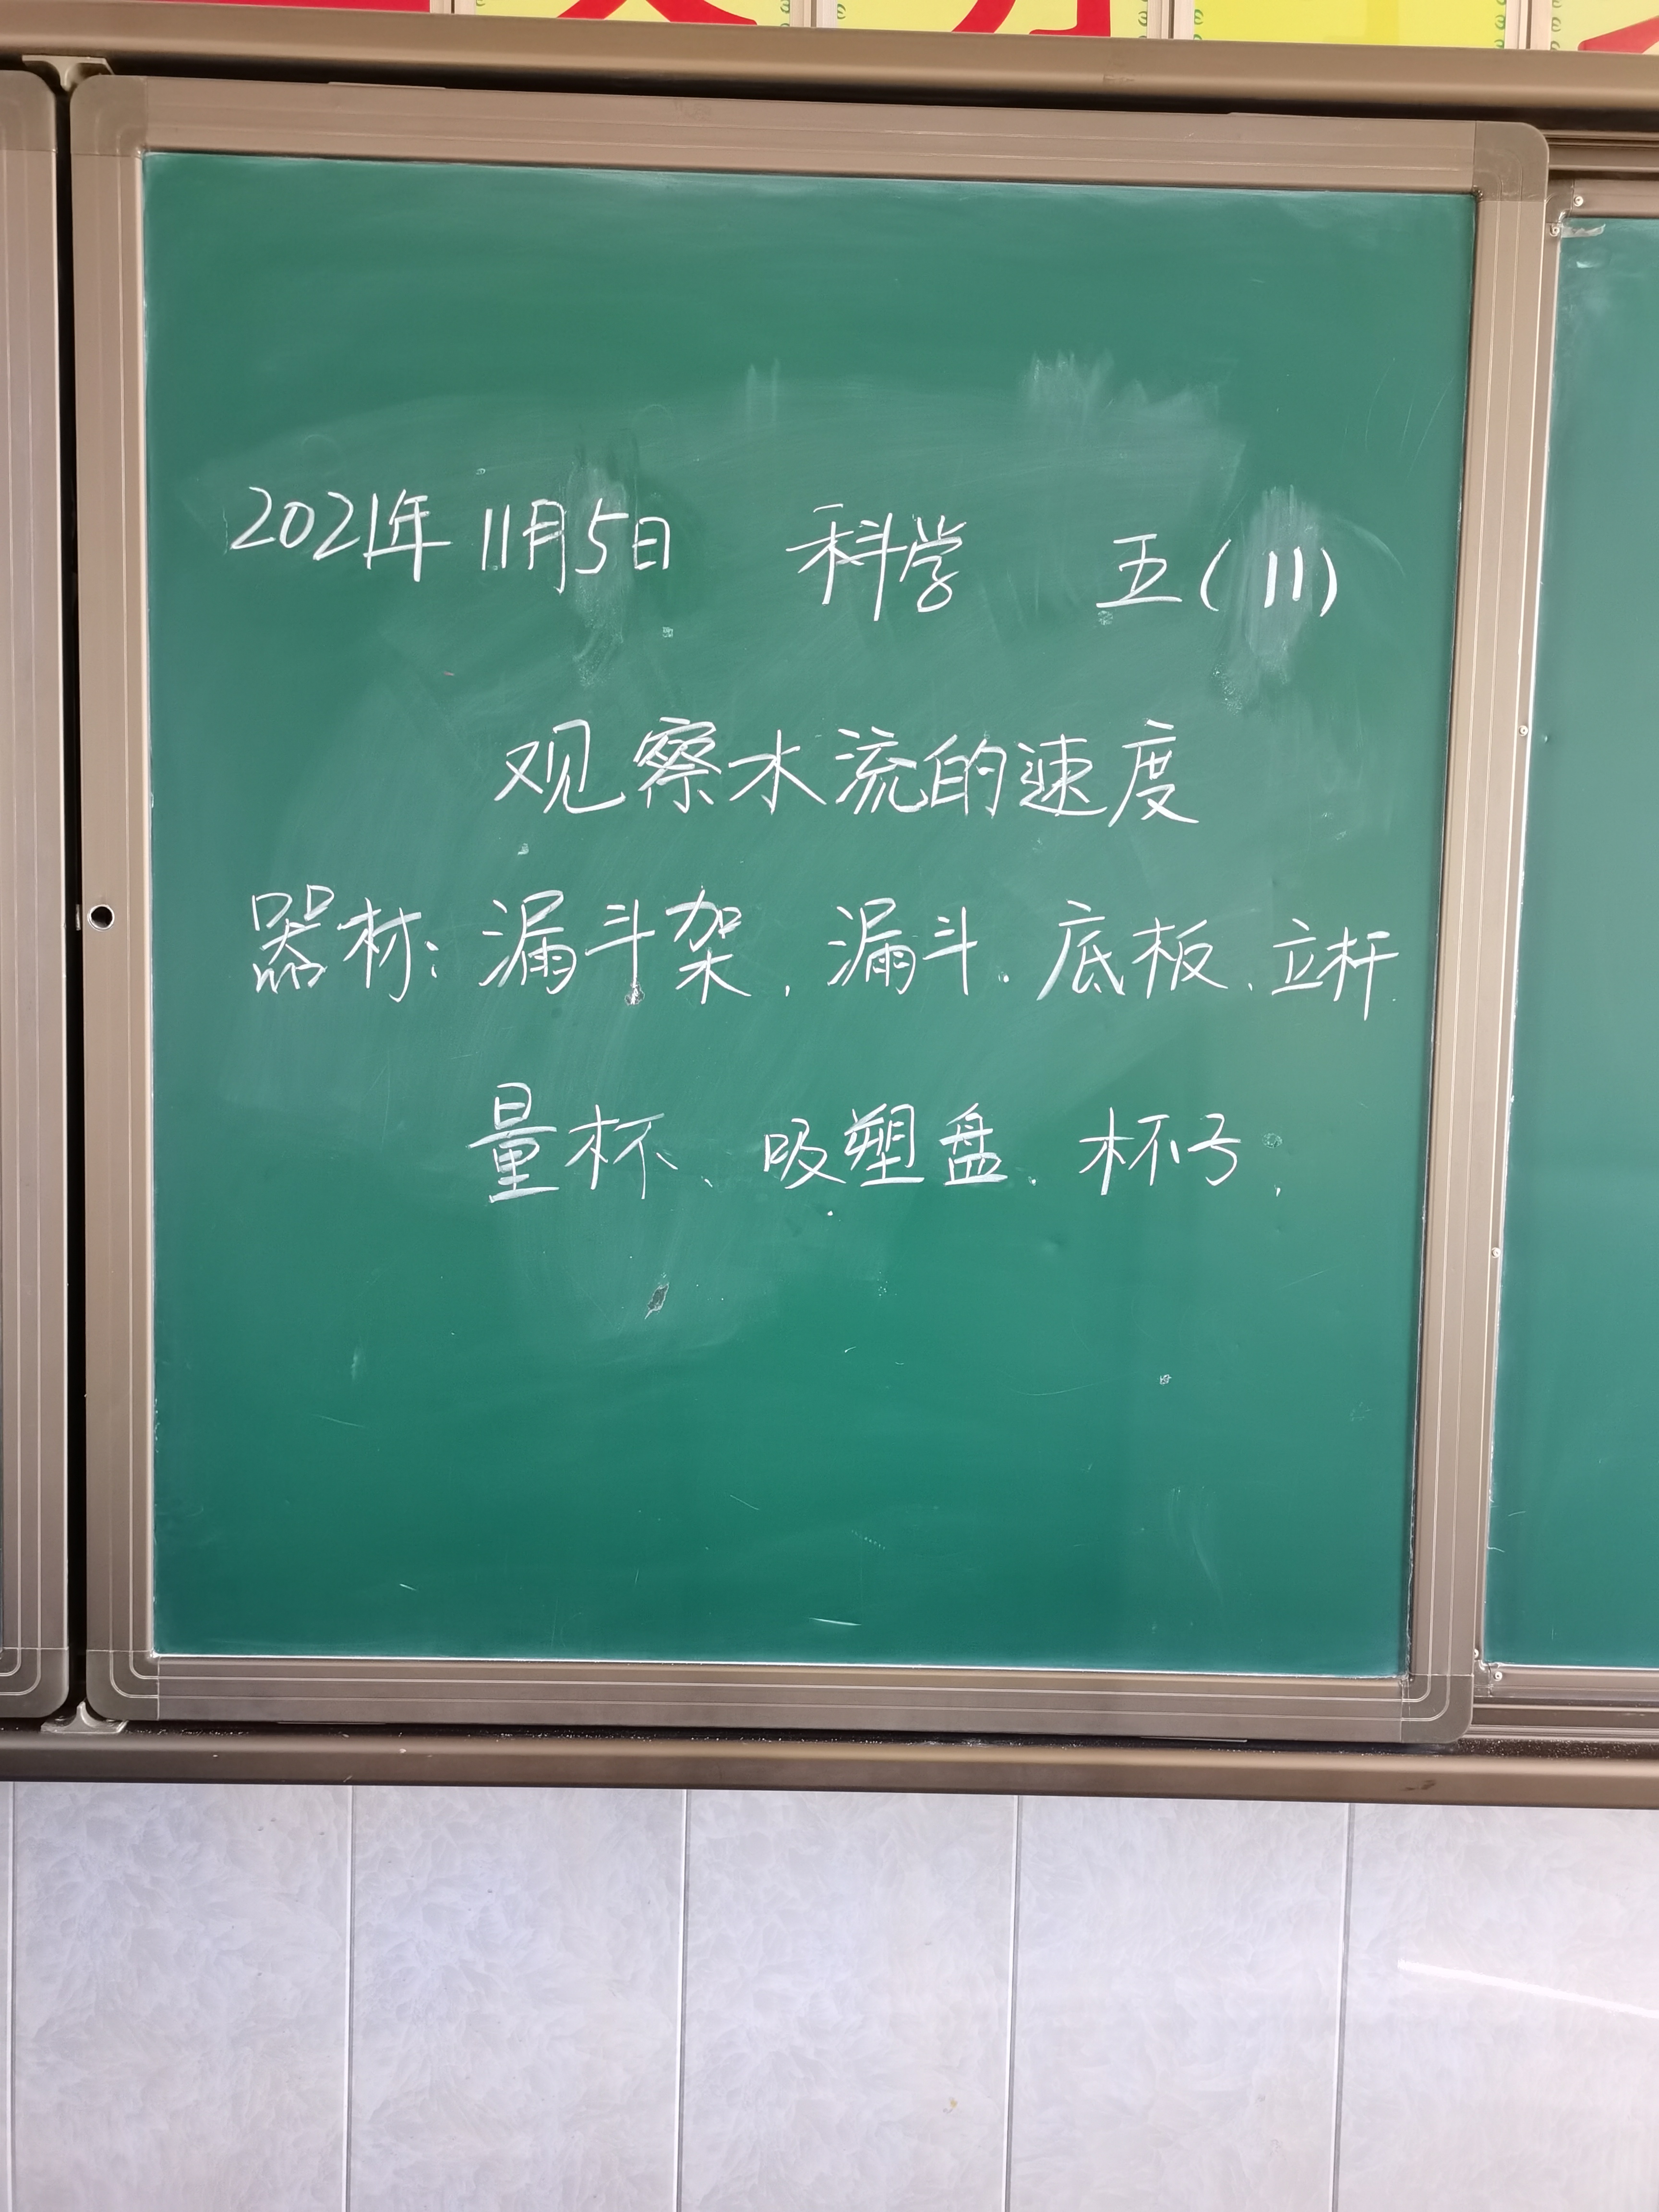 2021年 11月5日 科学 五(11)
观察水流的速度
器材:漏斗架、漏斗、底板、立杆
量杯、吸塑盘、杯子;